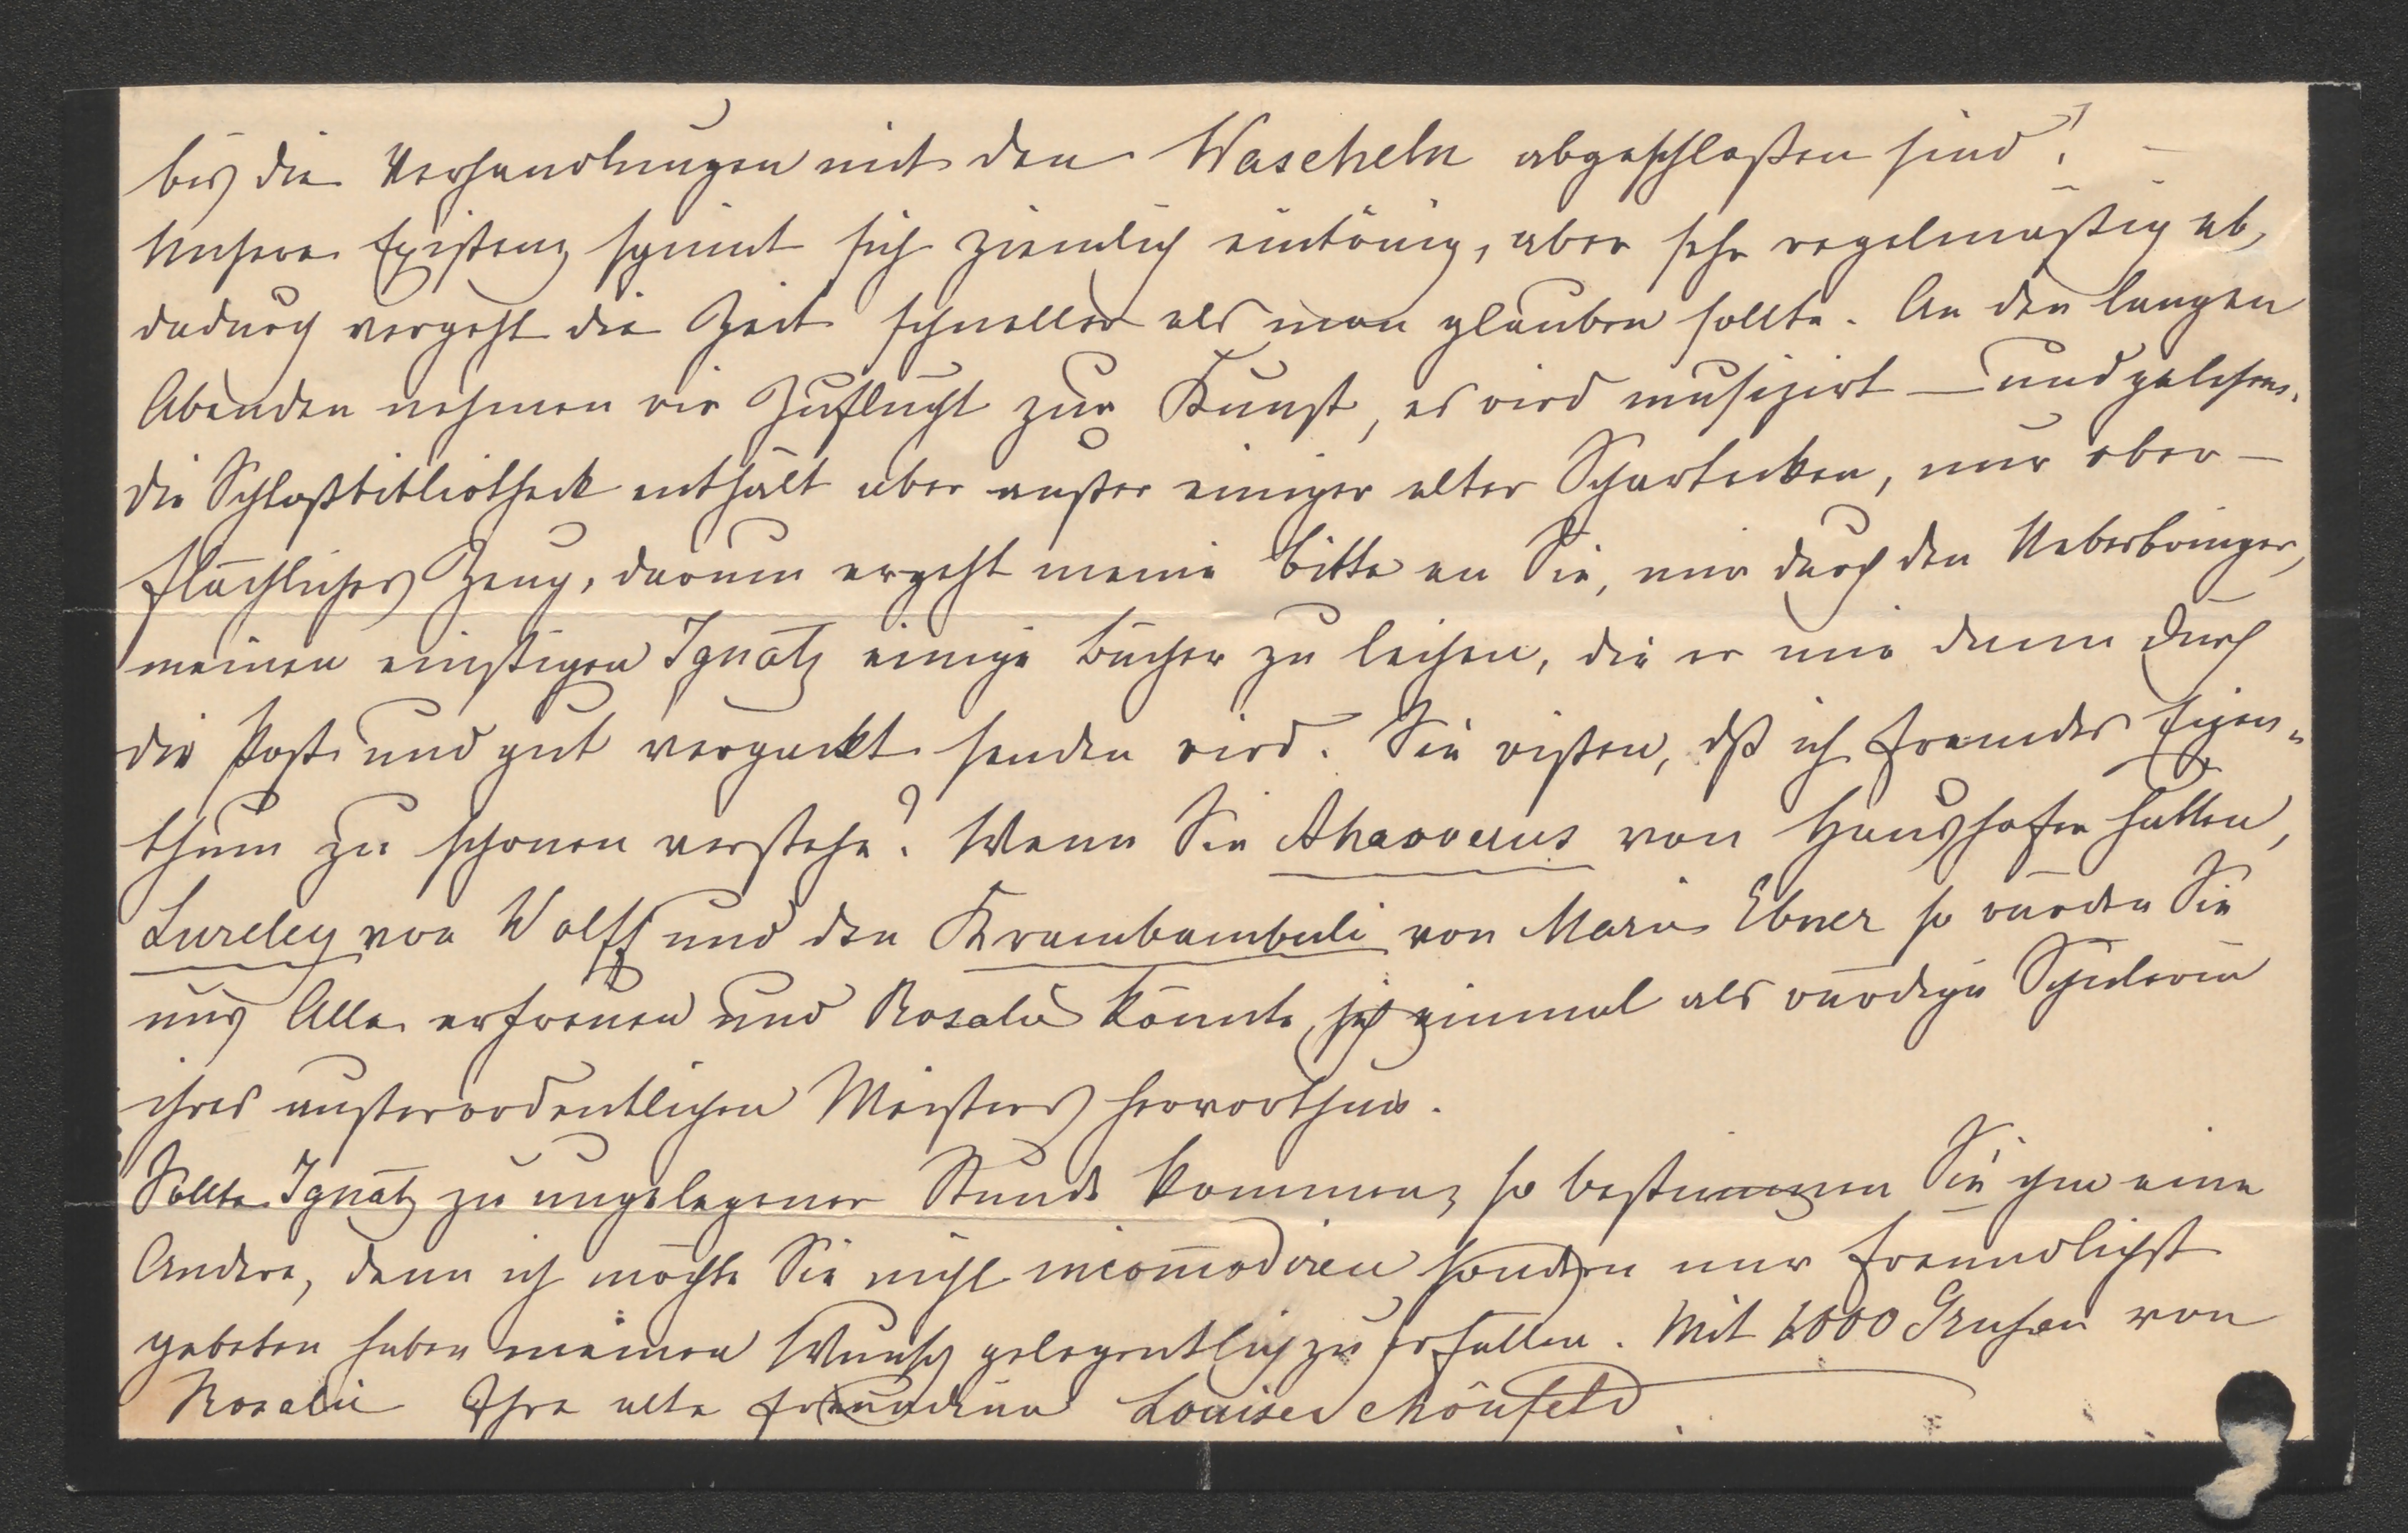 bis die Verhandlungen mit den Wascheln abgeschloßen sind! –
Unsere Existenz spinnt sich ziemlich eintönig, aber sehr regelmäßig ab,
dadurch vergeht die Zeit schneller als man glauben sollte. An den langen
Abenden nehmen wir Zuflucht zur Kunst, es wird musizirt – und gelesen.
Die Schloßbibliotheck enthält aber außer einiger alter Scharteken, nur ober-
flächliches Zeug, darum ergeht meine Bitte an Sie, mir durch den Ueberbringer,
meinen einstigen Ignatz einige Bücher zu leihen, die er mir dann durch
die Post und gut verpackt senden wird. Sie wißen, dß ich fremdes Eigen-
thum zu schonen verstehe? Wenn Sie Ahasverus von Haushofer hätten,
Lureley von Wolff und den Krambambuli von Marie Ebner so würden Sie
uns Alle erfreuen und Rosalie könnte sich einmal als würdige Schülerin
ihres außerordentlichen Meisters hervorthun.
Sollte Ignatz zu ungelegener Stunde kommen, so bestimmen Sie ihm eine
Andere, denn ich möchte Sie nicht incom̄odiren sondern nur freundlichst
gebeten haben meinen Wunsch gelegentlich zu erfüllen. Mit 1000 Grüßen von
Rosalie Ihre alte Freundinn Louise Schönfeld